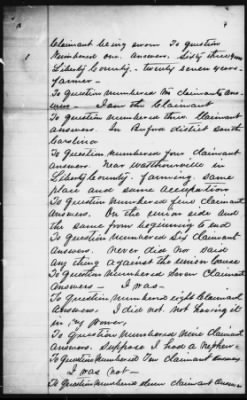 Claimant being sworn To question
Numbered one. answers. Sixty three years
Liberty County - twenty seven years -
farmer -
To question numbered two claimants ans-
wers - I am the Claimant
To question numbered three. Claimant
answers. In Beaufort district South
Carolina
To question numbered four claimant
answers. Near Walthourville in
Liberty County. farming. same
place and same occupation
To question numbered five claimant
answers. On the union side and
the same from beginning to end
To question numbered six claimant
answers. Never did nor said
any thing against the union cause
To question numbered seven claimant
answers - I was -
To question numbered eight claimant
answers. I did not. not having it
in my power,
To question numbered nine claimant
answers. Suppose I had a nephew -
To question numbered ten claimant answers
I was not -
To question numbered eleven claimant answers